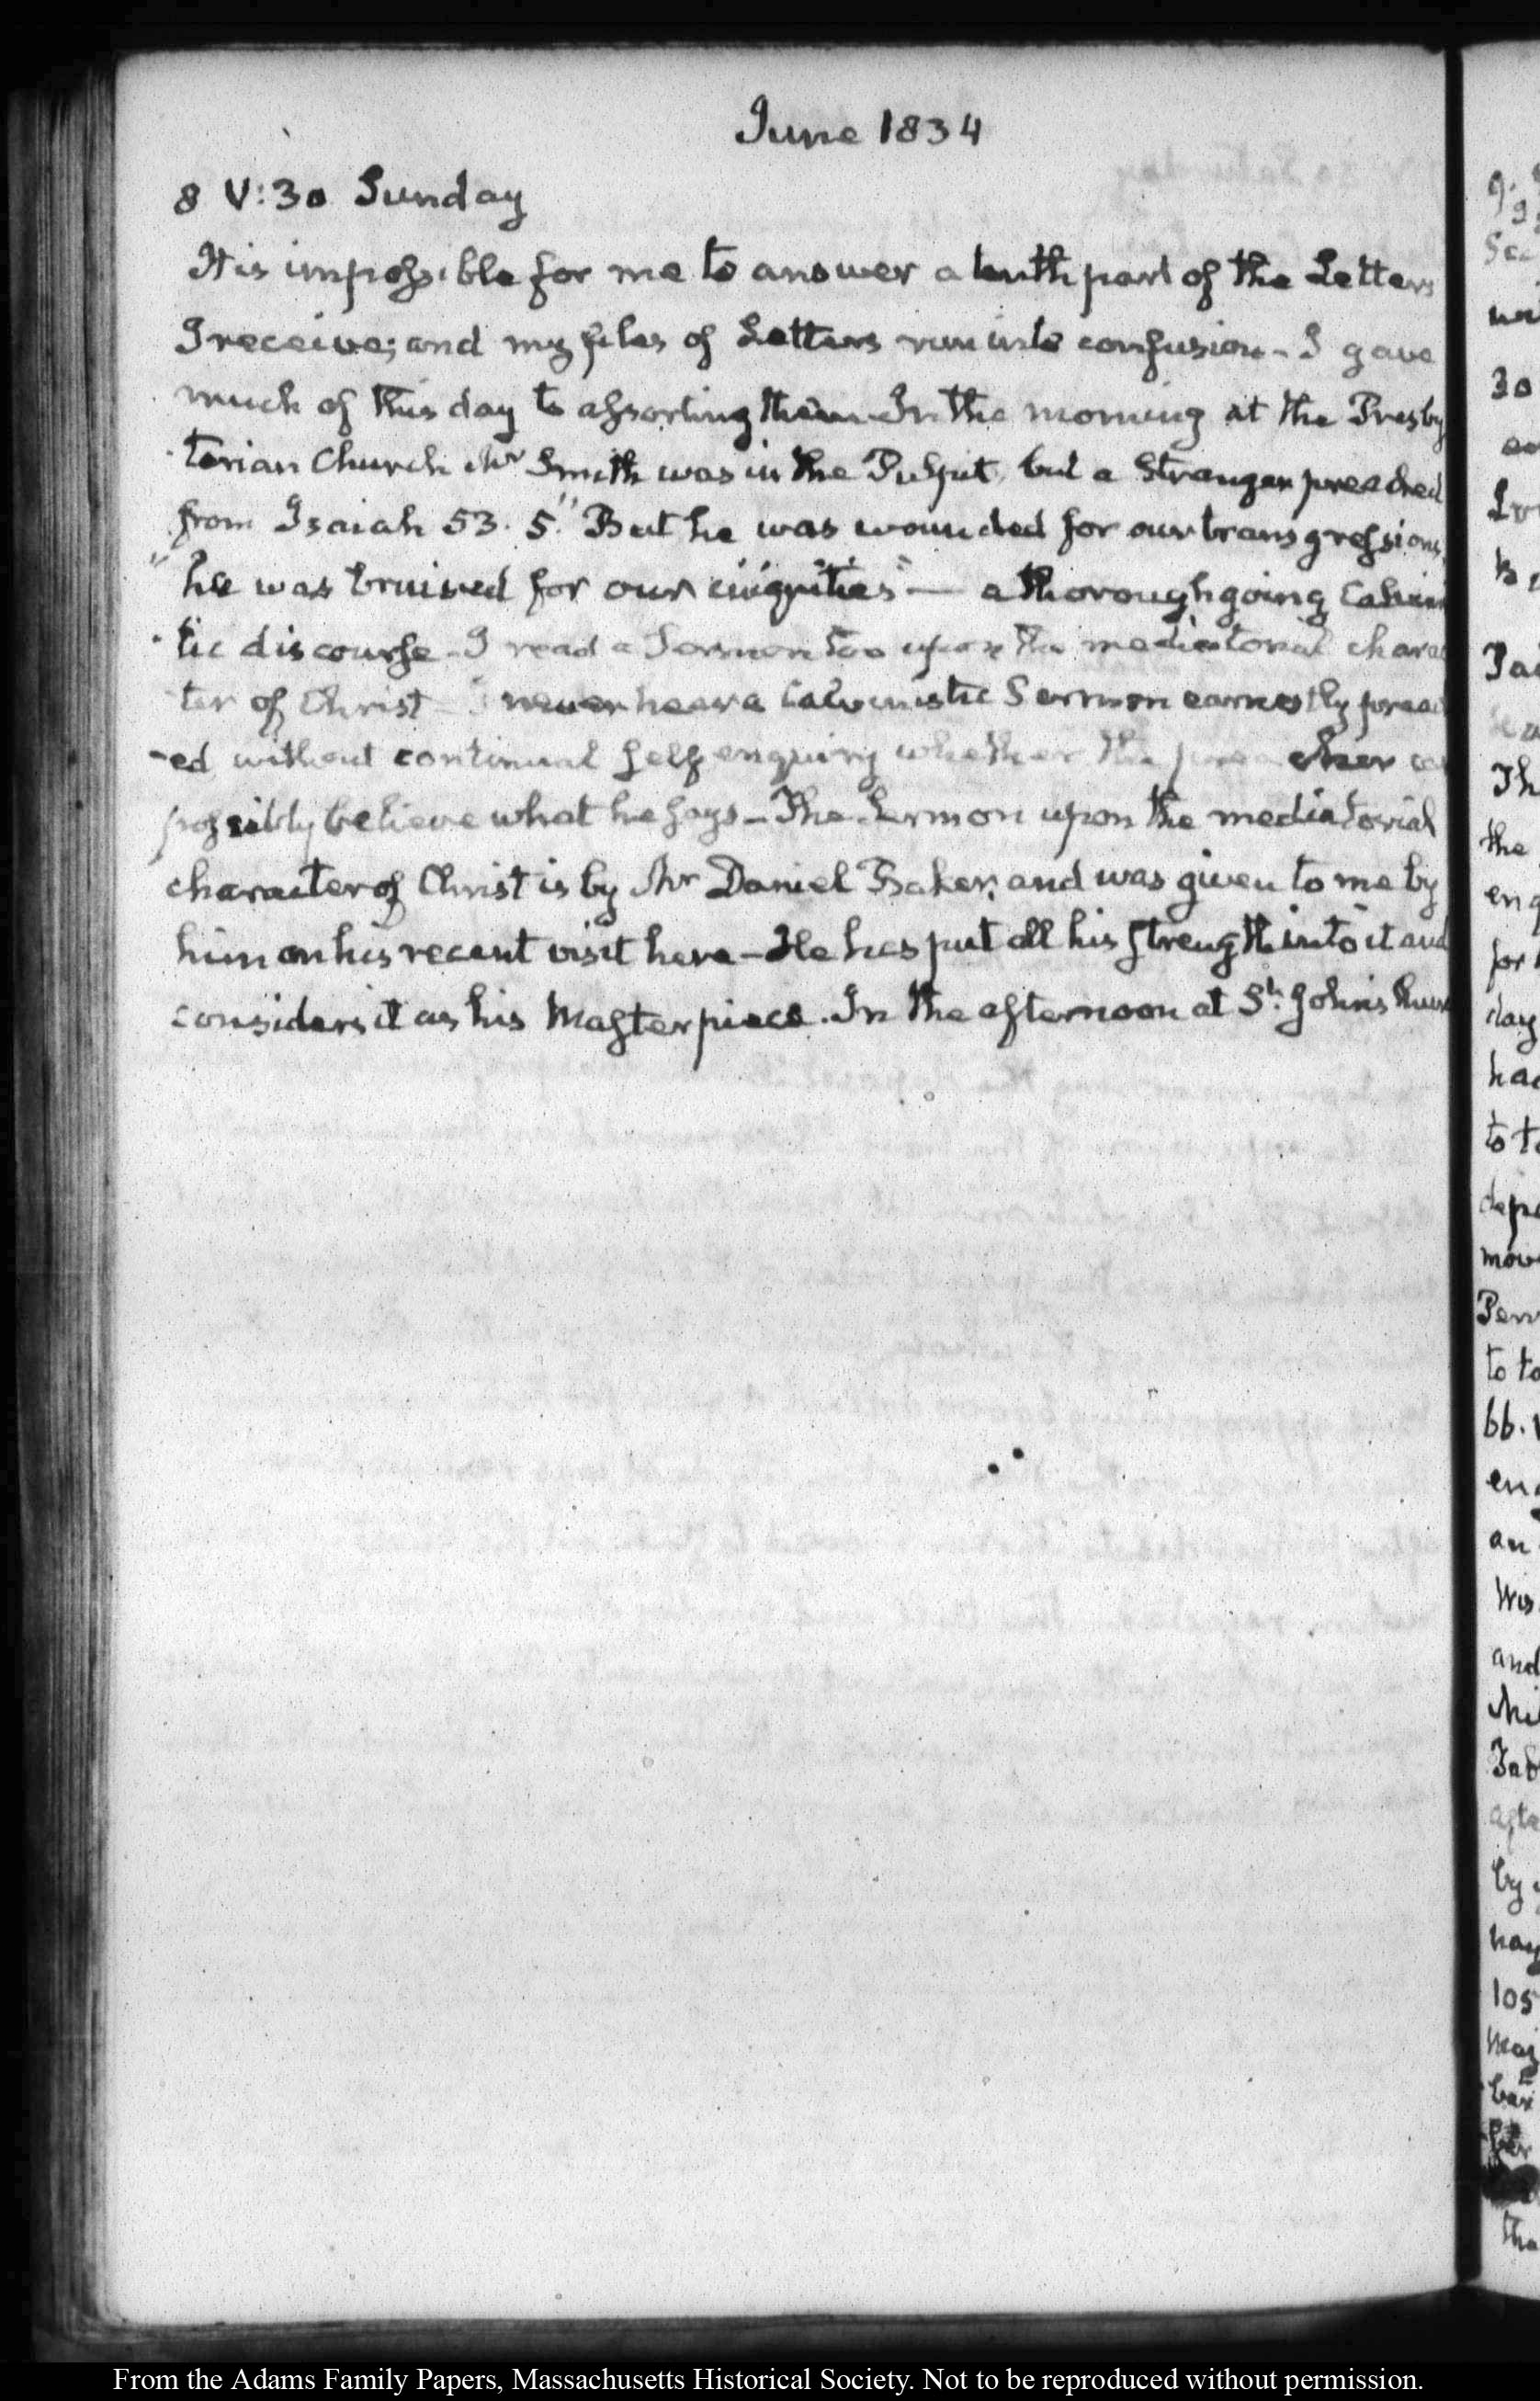 June 1834
8 V:30 Sunday
It is impossible for me to answer a tenth part of the Letters
I receive; and my files of Letters run into confusion - I gave
much of this day to assorting them - In the morning at the Presby
terian Church Mr Smith was in the Pulpit, but a Stranger preached
from Isaiah 53. 5. "But he was wounded for our transgressions,
"he was bruised for our iniquities" — a thorough going Calvinis
tic discourse - I read a Sermon too upon the mediatorial charac
ter of Christ - I never hear a Calvinistic Sermon earnestly preach
-ed without continual self enquiry whether the preacher can
possibly believe what he says - The Sermon upon the mediatorial
character of Christ is by Mr Daniel Baker, and was given to me by
him on his recent visit here - He has put all his strength into it and
considers it as his Masterpiece. In the afternoon at St. John's Church
From the Adams Family Papers, Massachusetts Historical Society. Not to be reproduced without permission.